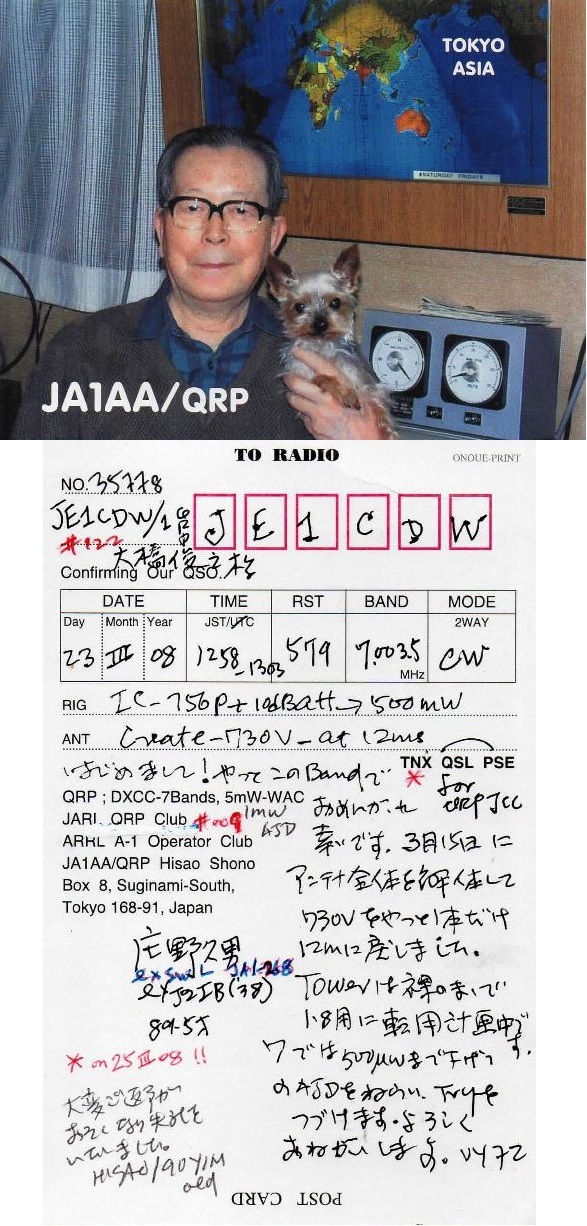 TOKYO
ASIA
SATURDAY FRIDAY
JA1AA/QRP
TO RADIO
ONOUE-PRINT
NO. 35778
JE1CDW/1
JE1CDW
#122
大橋俊
Confirming Our QSO.
DATE TIME RST BAND MODE
Day Month Year JST/UTC 2WAY
23 III 08 1258-1303 579 7.0035 MHz CW
RIG IC-756P+10dBatt→500mW
ANT Create-730V-at 12mH
TNX QSL PSE
* for QRP JCC
はじめまして!やっとこのBandで
おめにかゝれ
QRP ; DXCC-7Bands, 5mW-WAC
JARL QRP Club #009 1mW AJD
ARRL A-1 Operator Club
JA1AA/QRP Hisao Shono
Box 8, Suginami-South,
Tokyo 168-91, Japan
です。3月15日に
アンテナ全体を解体して
730Vをやっと1本だけ
12mに戻しました。
Towerは裸のまゝで
1.8用に転用計画中です。
7では500μWまで下げて
のAJDをねらい、Tryを
つづけます。よろしく
おねがいします。VY72
庄野久男
ex SWL JA1-268
ex J2IB ('38)
89.5才
* on 25 III 08 !!
大変ご返事が
おそくなり失礼を
いたしました。
HISAO/90YJM
old
POST CARD